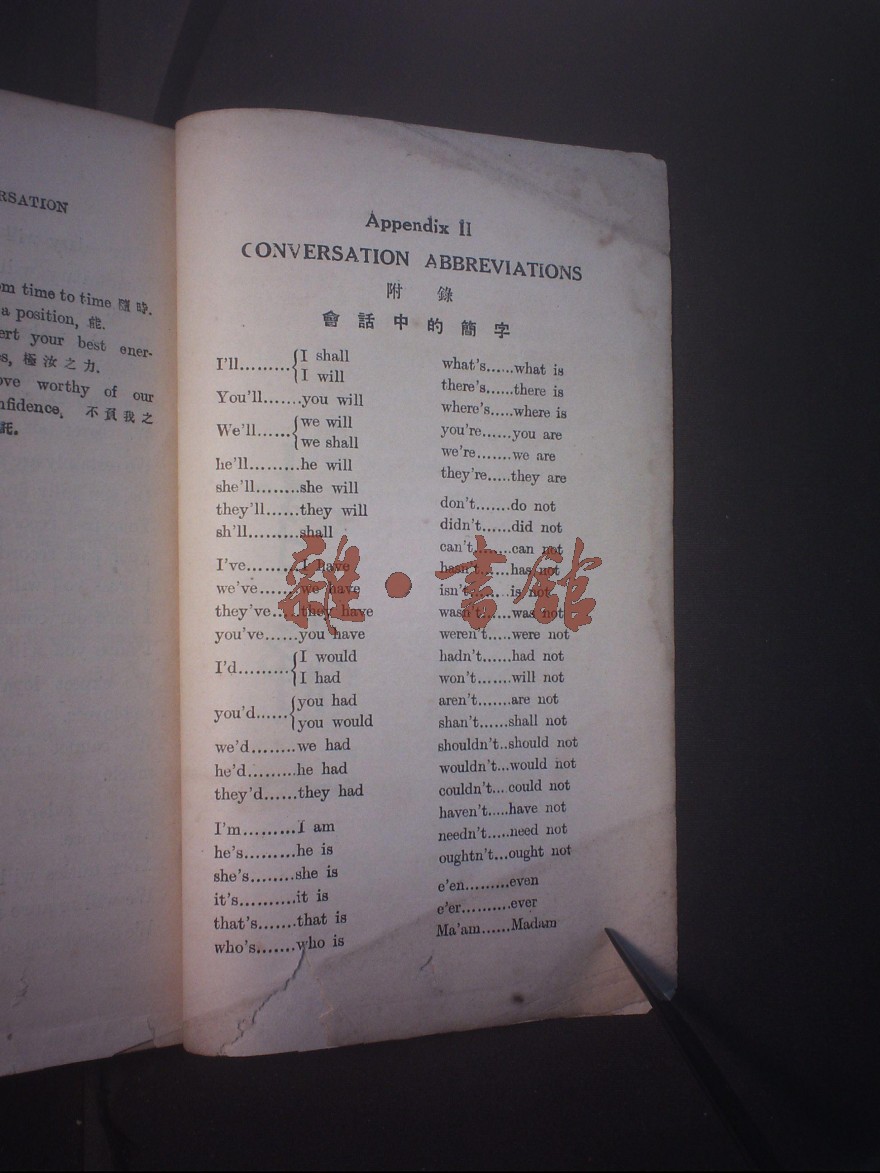 RSATION
om time to time 隨時.
a position, 能.
ert your best ener-
s, 極汝之力.
ove worthy of our
nfidence, 不負我之
託.
Appendix II
CONVERSATION ABBREVIATIONS
附錄
會話中的簡字
I'll.........{I shall
{I will
You'll.......you will
We'll......{we will
{we shall
he'll.........he will
she'll........she will
they'll......they will
sh'll.........shall
I've.........I have
we've.......we have
they've.....they have
you've......you have
I'd.........{I would
{I had
you'd......{you had
{you would
we'd........we had
he'd.........he had
they'd......they had
I'm.........I am
he's.........he is
she's........she is
it's..........it is
that's.......that is
who's.......who is
what's......what is
there's......there is
where's.....where is
you're......you are
we're.......we are
they're.....they are
don't.......do not
didn't......did not
can't........can not
hasn't......has not
isn't........is not
wasn't......was not
weren't.....were not
hadn't......had not
won't.......will not
aren't......are not
shan't......shall not
shouldn't..should not
wouldn't...would not
couldn't...could not
haven't.....have not
needn't.....need not
oughtn't...ought not
e'en.........even
e'er..........ever
Ma'am......Madam
雜·書館